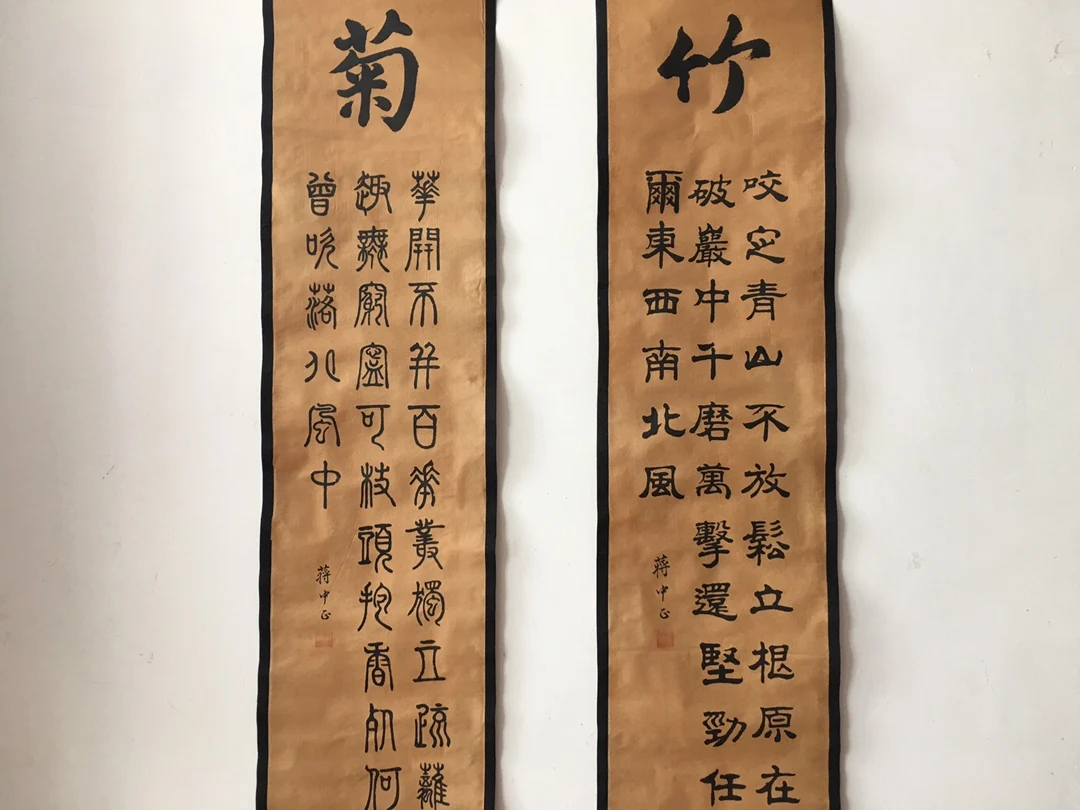 竹
咬定青山不放鬆立根原在
破巖中千磨萬擊還堅勁任
爾東西南北風
蔣中正
菊
華開不并百花叢獨立疏籬
趣無窮寍可枝頭抱香死何
曾吹落北風中
蔣中正